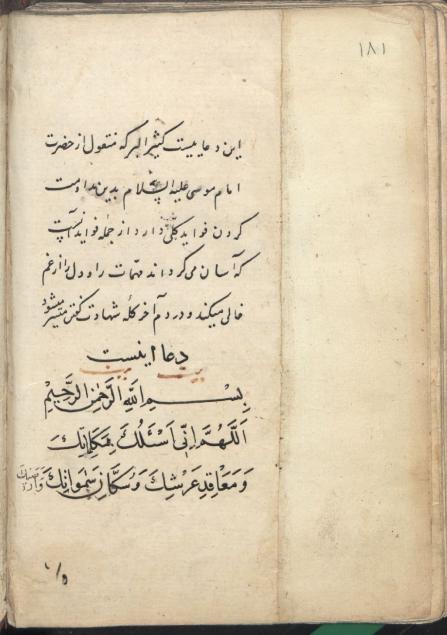 ۱۸۱
این دعاییست کثیر البرکه منقول از حضرت
امام موسی علیه السلام بدین مداومت
کردن فواید کلی دارد از جمله فواید آنست
که آسان می‌گرداند مهمات را و دل را از غم
خالی میکند و در دم آخر کلمه شهادت گفتن میسر میشود
دعا اینست
بِسْمِ اللهِ الرَّحْمٰنِ الرَّحِيْمِ
اَللّٰهُمَّ اِنّى اَسْئَلُكَ بِمَكَانِكَ
وَمَعَاقِدِ عَرْشِكَ وَسُكَّانِ سَمٰوَاتِكَ وَارَضِكَ